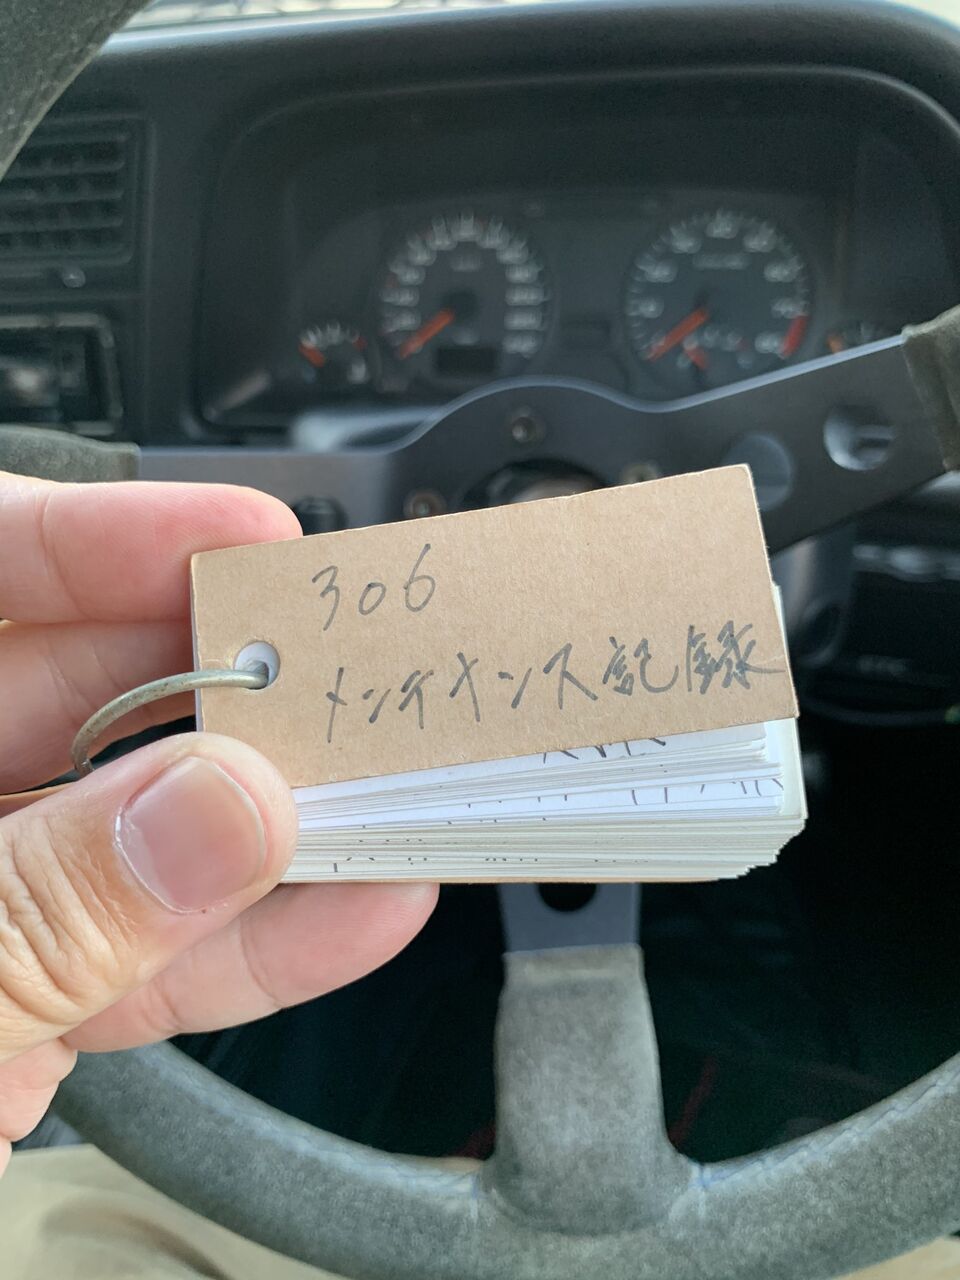 306
メンテナンス記録